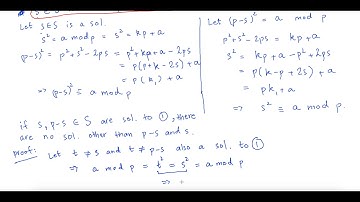 Let s ∈ S is a sol.
s² = a mod p = s² = kp + a
(p-s)² = p² + s² - 2ps = p² + kp + a - 2ps
= p(p + k - 2s) + a
= p(k₁) + a
⇒ (p-s)² ≡ a mod p
Let (p-s)² = a mod p
p² + s² - 2ps = kp + a
s² = kp + a - p² + 2ps
= p(k - p + 2s) + a
= pk₁ + a
⇒ s² ≡ a mod p.
if s, p-s ∈ S are sol. to ①, there
are no sol. other than p-s and s.
proof: Let t ≠ s and t ≠ p-s also a sol. to ①
⇒ a mod p = t² = s² = a mod p
⇒